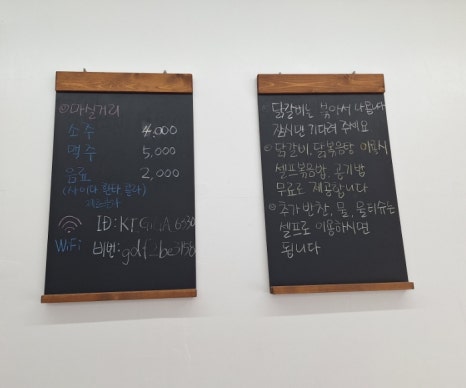 ◎마실거리
소주 4,000
맥주 5,000
음료 2,000
(사이다 환타 콜라)
제로콜라
ID:KT_GiGA_6930
WiFi 비번:
◎닭갈비는 볶아서 나옵니다
잠시만 기다려 주세요
◎닭갈비, 닭볶음탕 이용시
셀프볶음밥, 공기밥
무료로 제공합니다
◎추가반찬, 물, 물티슈는
셀프로 이용하시면
됩니다